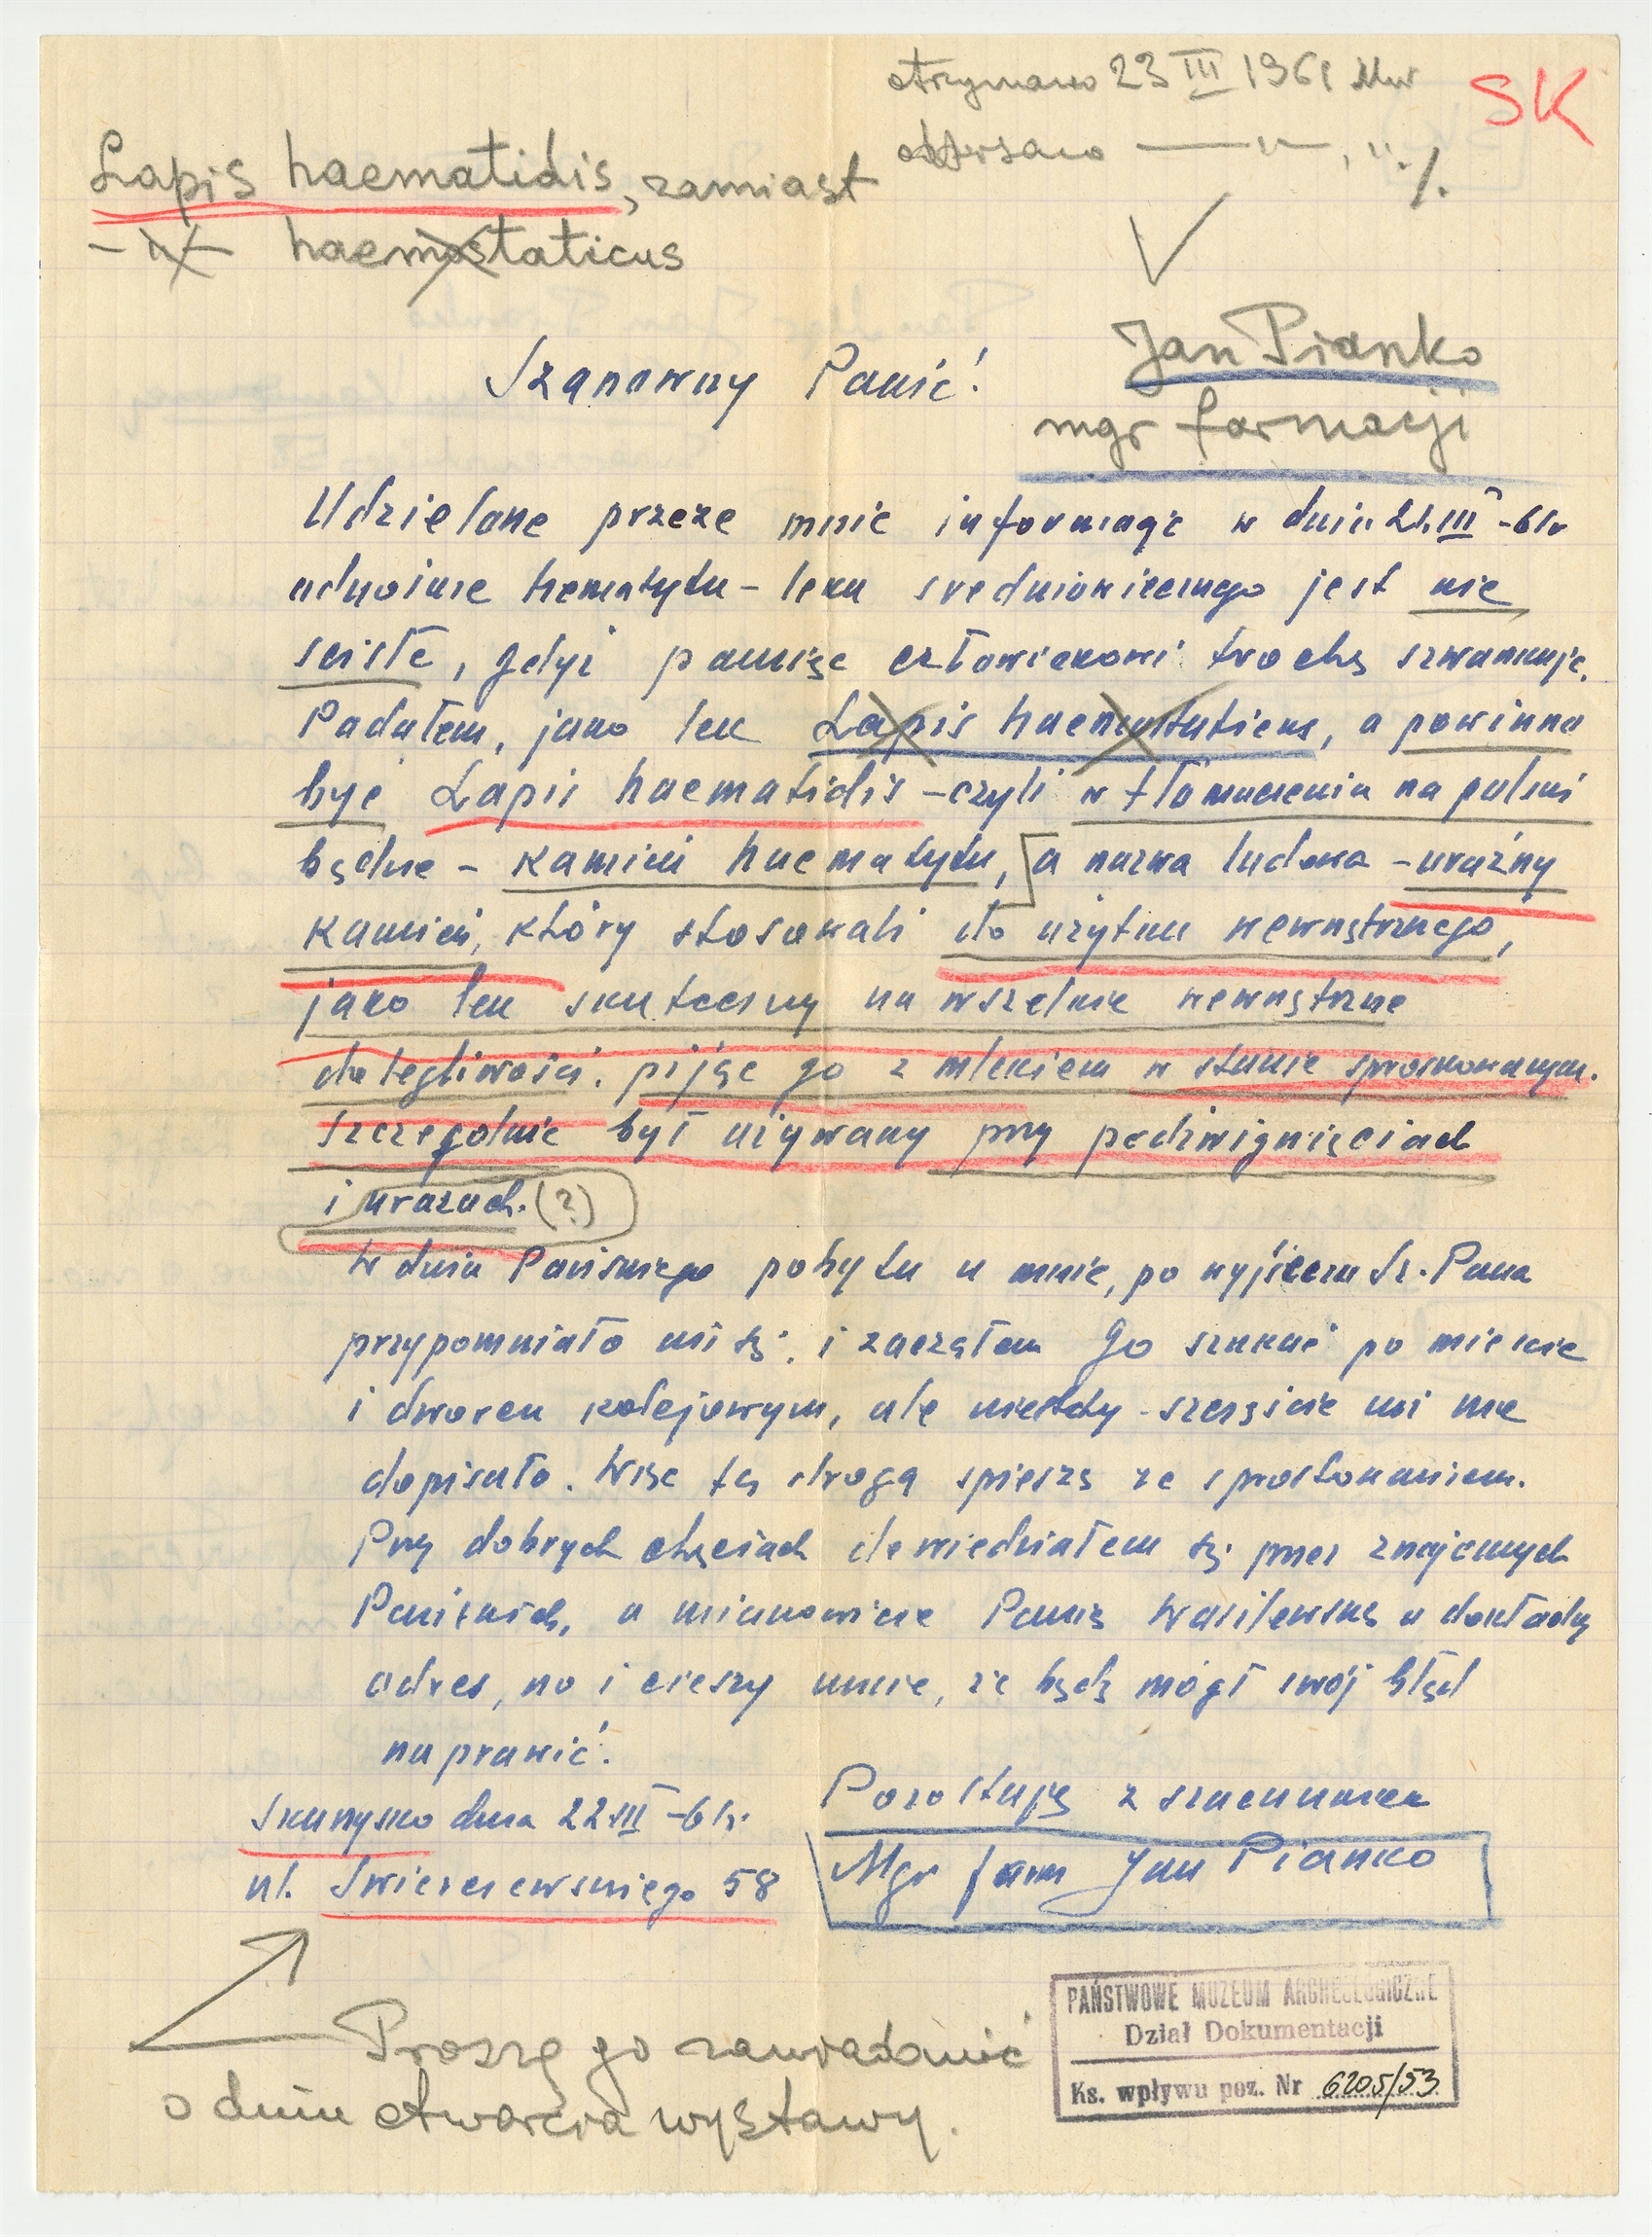 otrzymano 23 III 1961 Mw
SK
Lapis haematidis, zamiast
haemostaticus
Jan Pianko
mgr farmacji
Szanowny Panie!
Udzielone przeze mnie informacje w dniu 21.III-61r
odnośnie hematytu – leku średniowiecznego jest nie
ścisłe, gdyż pamięć człowiekowi trochę szwankuje.
Podałem, jako lek Lapis, a powinno
być Lapis haematidis – czyli w tłomaczeniu na polski
będzie – kamień haematytu, a nazwa ludowa – uraźny
kamień, który stosowali do użytku wewnętrznego,
jako lek skuteczny na wszelkie wewnętrzne
dolegliwości, pijąc go z mlekiem w stanie sproszkowanym.
Szczególnie był używany przy podźwignięciach
i urazach. (?)
W dniu Pańskiego pobytu u mnie, po wyjściu Sz. Pana
przypomniało mi się, i zacząłem Go szukać po mieście
i dworcu kolejowym, ale niestety szczęście mi nie
dopisało. Więc tą drogą spieszę ze sprostowaniem.
Przy dobrych chęciach dowiedziałem się przez znajomych
Pańskich, a mianowicie Panią Wasilewską o dokładny
adres, no i cieszy mnie, że będę mógł swój błąd
naprawić.
Pozostaję z szacunkiem
Skarżysko dnia 22 III-61r.
Mgr farm Jan Pianko
ul. Świerczewskiego 58
Proszę go zawiadomić
o dniu otwarcia wystawy.
PAŃSTWOWE MUZEUM ARCHEOLOGICZNE
Dział Dokumentacji
Ks. wpływu poz. Nr 6205/53